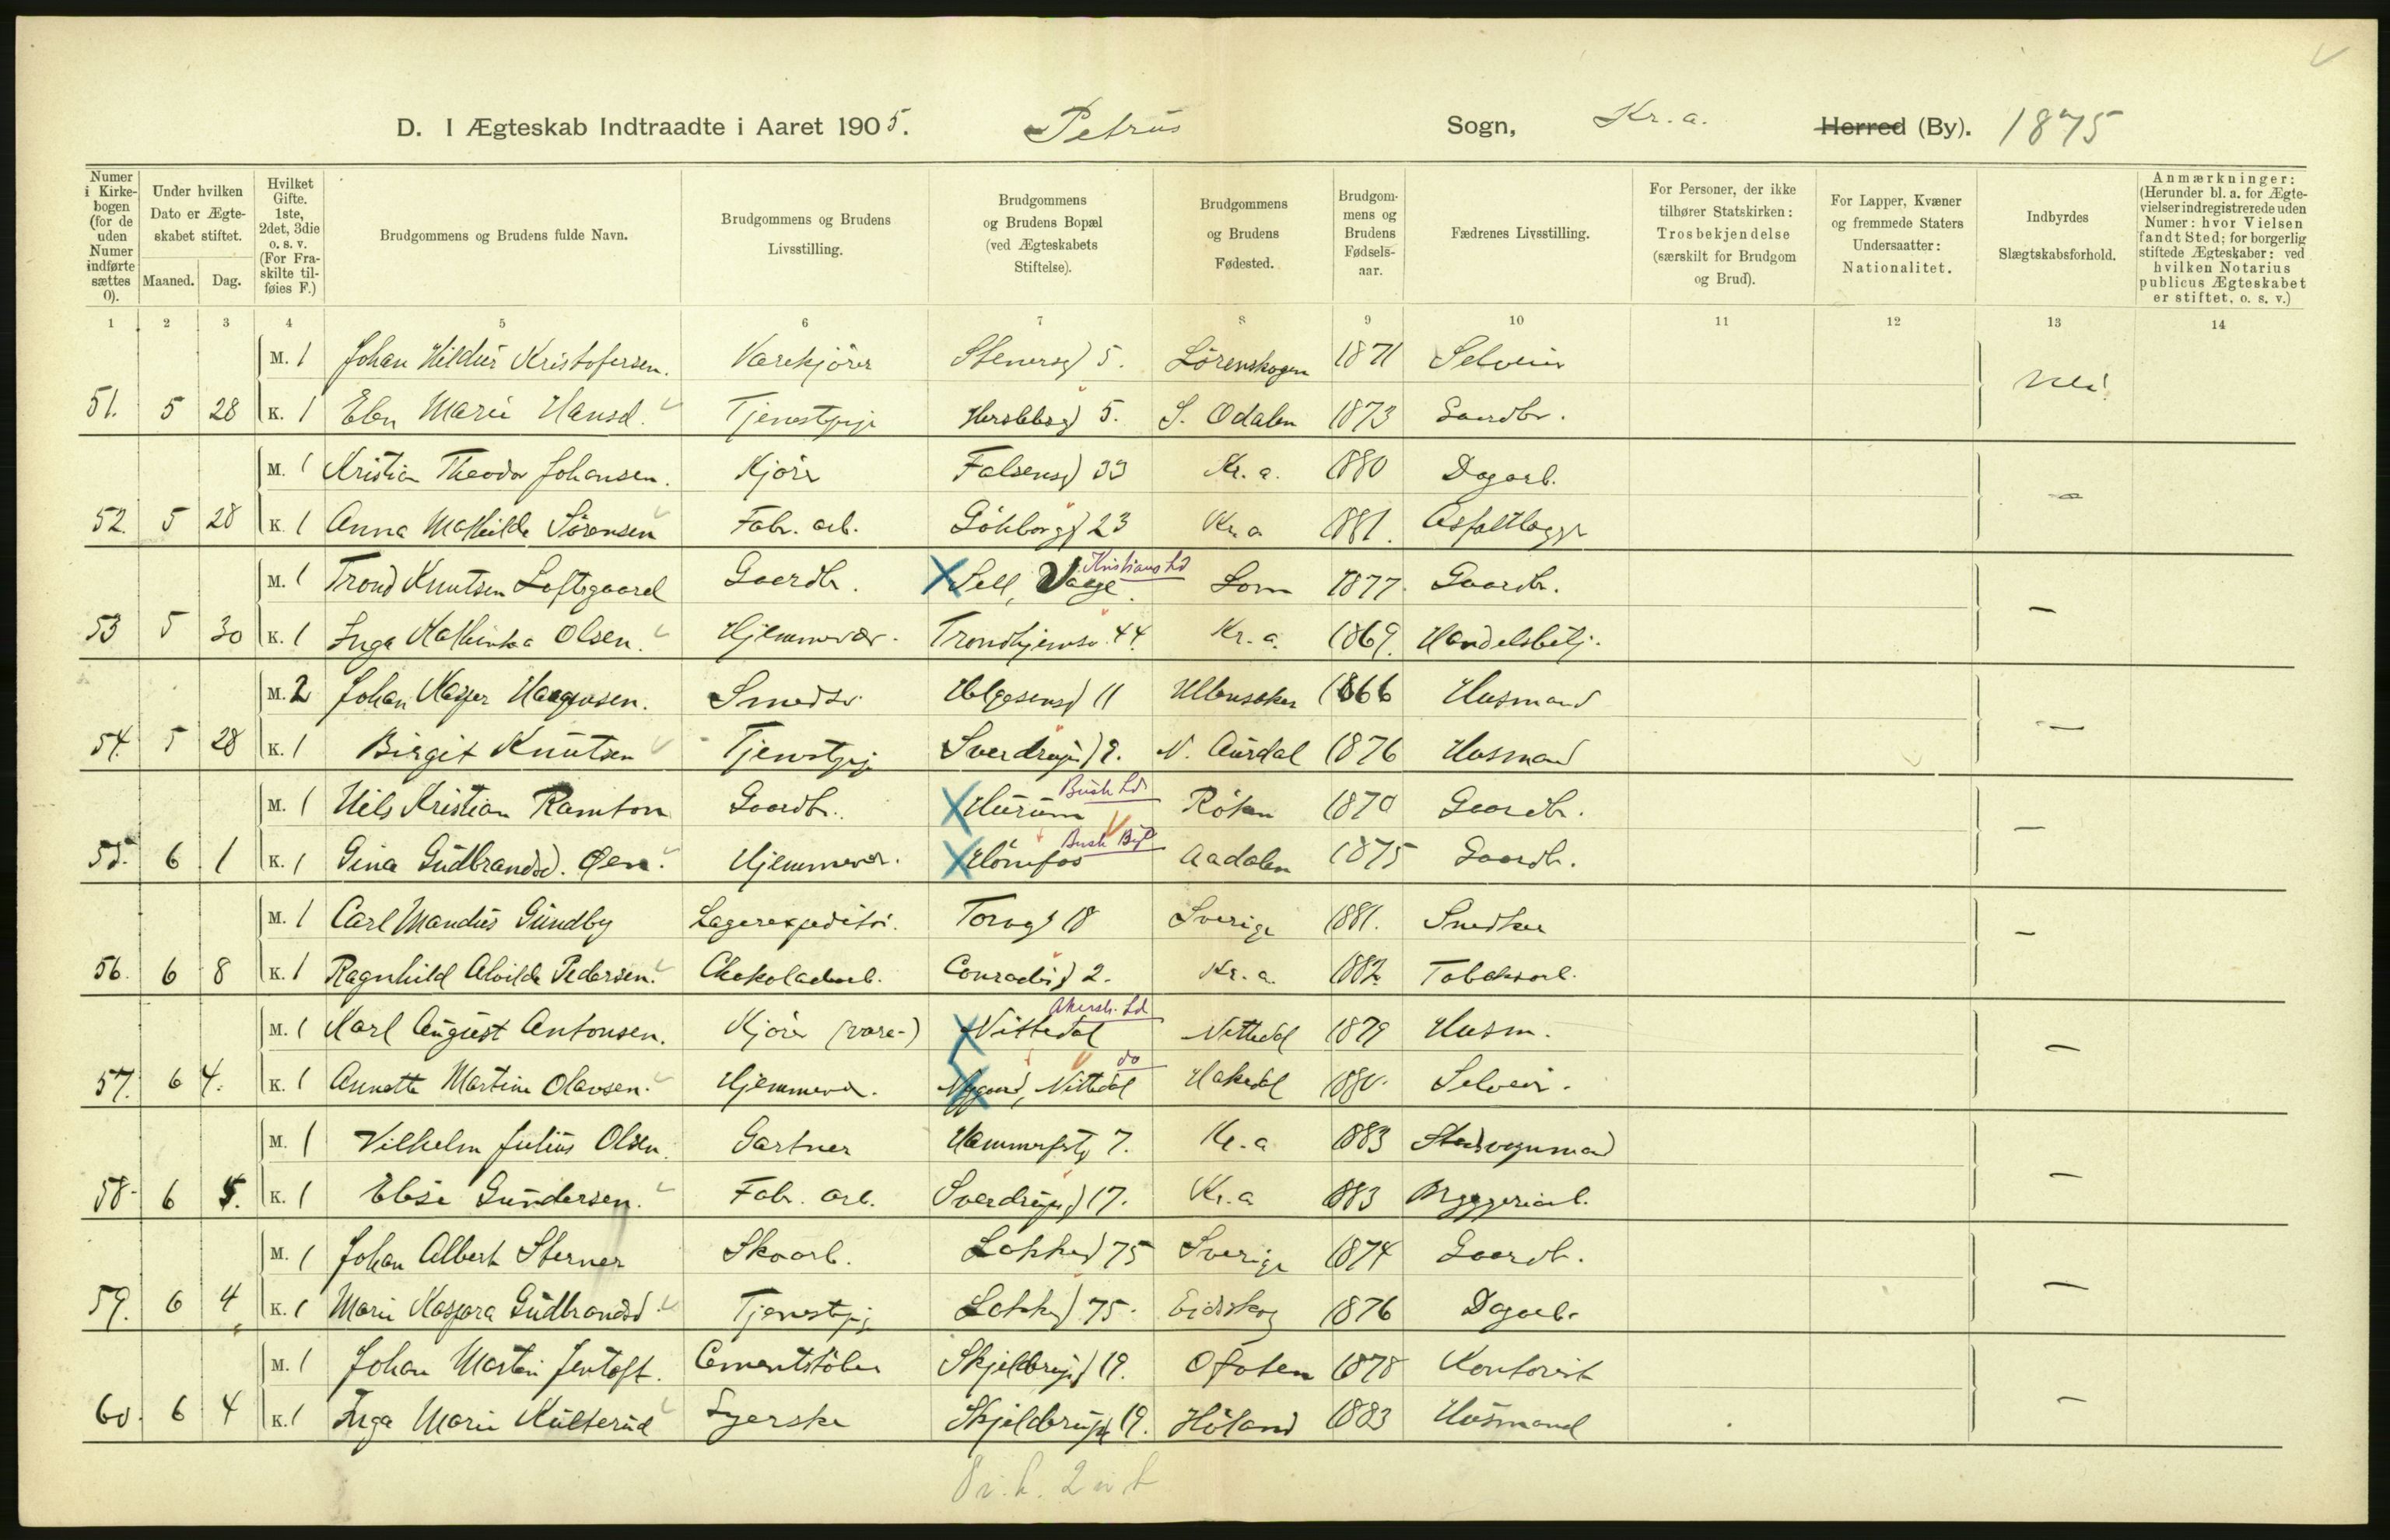 D. I Ægteskab Indtraadte i Aaret 1905. Petrus Sogn, Kr. a. Herred (By). 1875
Numer i Kirkebogen (for de uden Numer indførte sættes 0). Under hvilken Dato er Ægteskabet stiftet. Maaned. Dag. Hvilket Gifte. 1ste, 2det, 3die o. s. v. (For Fraskilte tilføies F.) Brudgommens og Brudens fulde Navn. Brudgommens og Brudens Livsstilling. Brudgommens og Brudens Bopæl (ved Ægteskabets Stiftelse). Brudgommens og Brudens Fødested. Brudgommens og Brudens Fødselsaar. Fædrenes Livsstilling. For Personer, der ikke tilhører Statskirken: Trosbekjendelse (særskilt for Brudgom og Brud). For Lapper, Kvæner og fremmede Staters Undersaatter: Nationalitet. Indbyrdes Slægtskabsforhold. Anmærkninger: (Herunder bl. a. for Ægtevielser indregistrerede uden Numer: hvor Vielsen fandt Sted; for borgerlig stiftede Ægteskaber: ved hvilken Notarius publicus Ægteskabet er stiftet, o. s. v.)
1 2 3 4 5 6 7 8 9 10 11 12 13 14
M. 1 Johan Hildus Kristofersen. Varekjörer Stenersg 5. Lörenskogen 1871 Selveier
51. 5 28 K. 1 Elen Marie Hansd. Tjenestpige Herslebsg 5. S. Odalen 1873 Gaardbr. Nei!
M. 1 Kristian Theodor Johansen. Kjörer Falsensg 33 Kr. a. 1880 Dagarb.
52. 5 28 K. 1 Anna Mathilde Sörensen Fabr. arb. Göteborgg 23 Kr. a 1881. Asfaltlægger —
Kristians Ld
M. 1 Trond Knutsen Loftsgaard Gaardbr. Sell, Vaage. Lom 1877. Gaardbr.
53 5 30 K. 1 Inga Kathinka Olsen. Hjemmevær. Trondhjemsv. 44. Kr. a. 1869. Handelsbetj. —
M. 2 Johan Kasper Haagensen. Smedsv Helgesensg 11 Ullensaker 1866 Husmand
54. 5 28 K. 1 Birgit Knutsen Tjenstpige Sverdrupsg 8. N. Aurdal 1876 Husmand —
Busk Ld
M. 1 Nils Kristian Ramton Gaardbr. Hurum Röken 1870 Gaardbr.
Busk By
55. 6 1 K. 1 Gina Gudbrandsd. Öen. Hjemmevær. Hönefos Aadalen 1875 Gaardbr. —
M. 1 Carl Mandus Gundby Lagerexpeditör. Torvg 18 Sverige 1881. Snedker
56. 6 8 K. 1 Ragnhild Alvilde Pedersen. Chokoladearb. Conradisg 2. Kr. a. 1882. Tobaksarb. —
Akersh. Ld
M. 1 Karl August Antonsen. Kjörer (vare-) Nittedal Nittedal 1879 Husm.
do
57. 6 4. K. 1 Annette Martine Olavsen. Hjemmevær. Nygaard, Nittedal Hakedal 1880. Selveier. —
M. 1 Vilhelm Julius Olsen. Gartner Hammerfestg 7. Kr. a 1883 Stadsvognmand
58. 6 5. K. 1 Elise Gundersen. Fabr. arb. Sverdrupsg 17. Kr. a 1883 Bryggeriarb. —
M. 1 Johan Albert Sterner Skoarb. Lakkeg 75 Sverige 1874 Gaardbr.
59. 6 4 K. 1 Marie Kaspara Gudbrandsd. Tjenestpige Lakkeg 75. Eidskog 1876 Dagarb. —
M. 1 Johan Martin Jentoft. Cementstöber Skjelderupsg 19. Ofoten 1878 Kontorist
60. 6 4 K. 1 Inga Marie Kulterud Syerske Skjelderupsg 19. Höland 1883 Husmand —